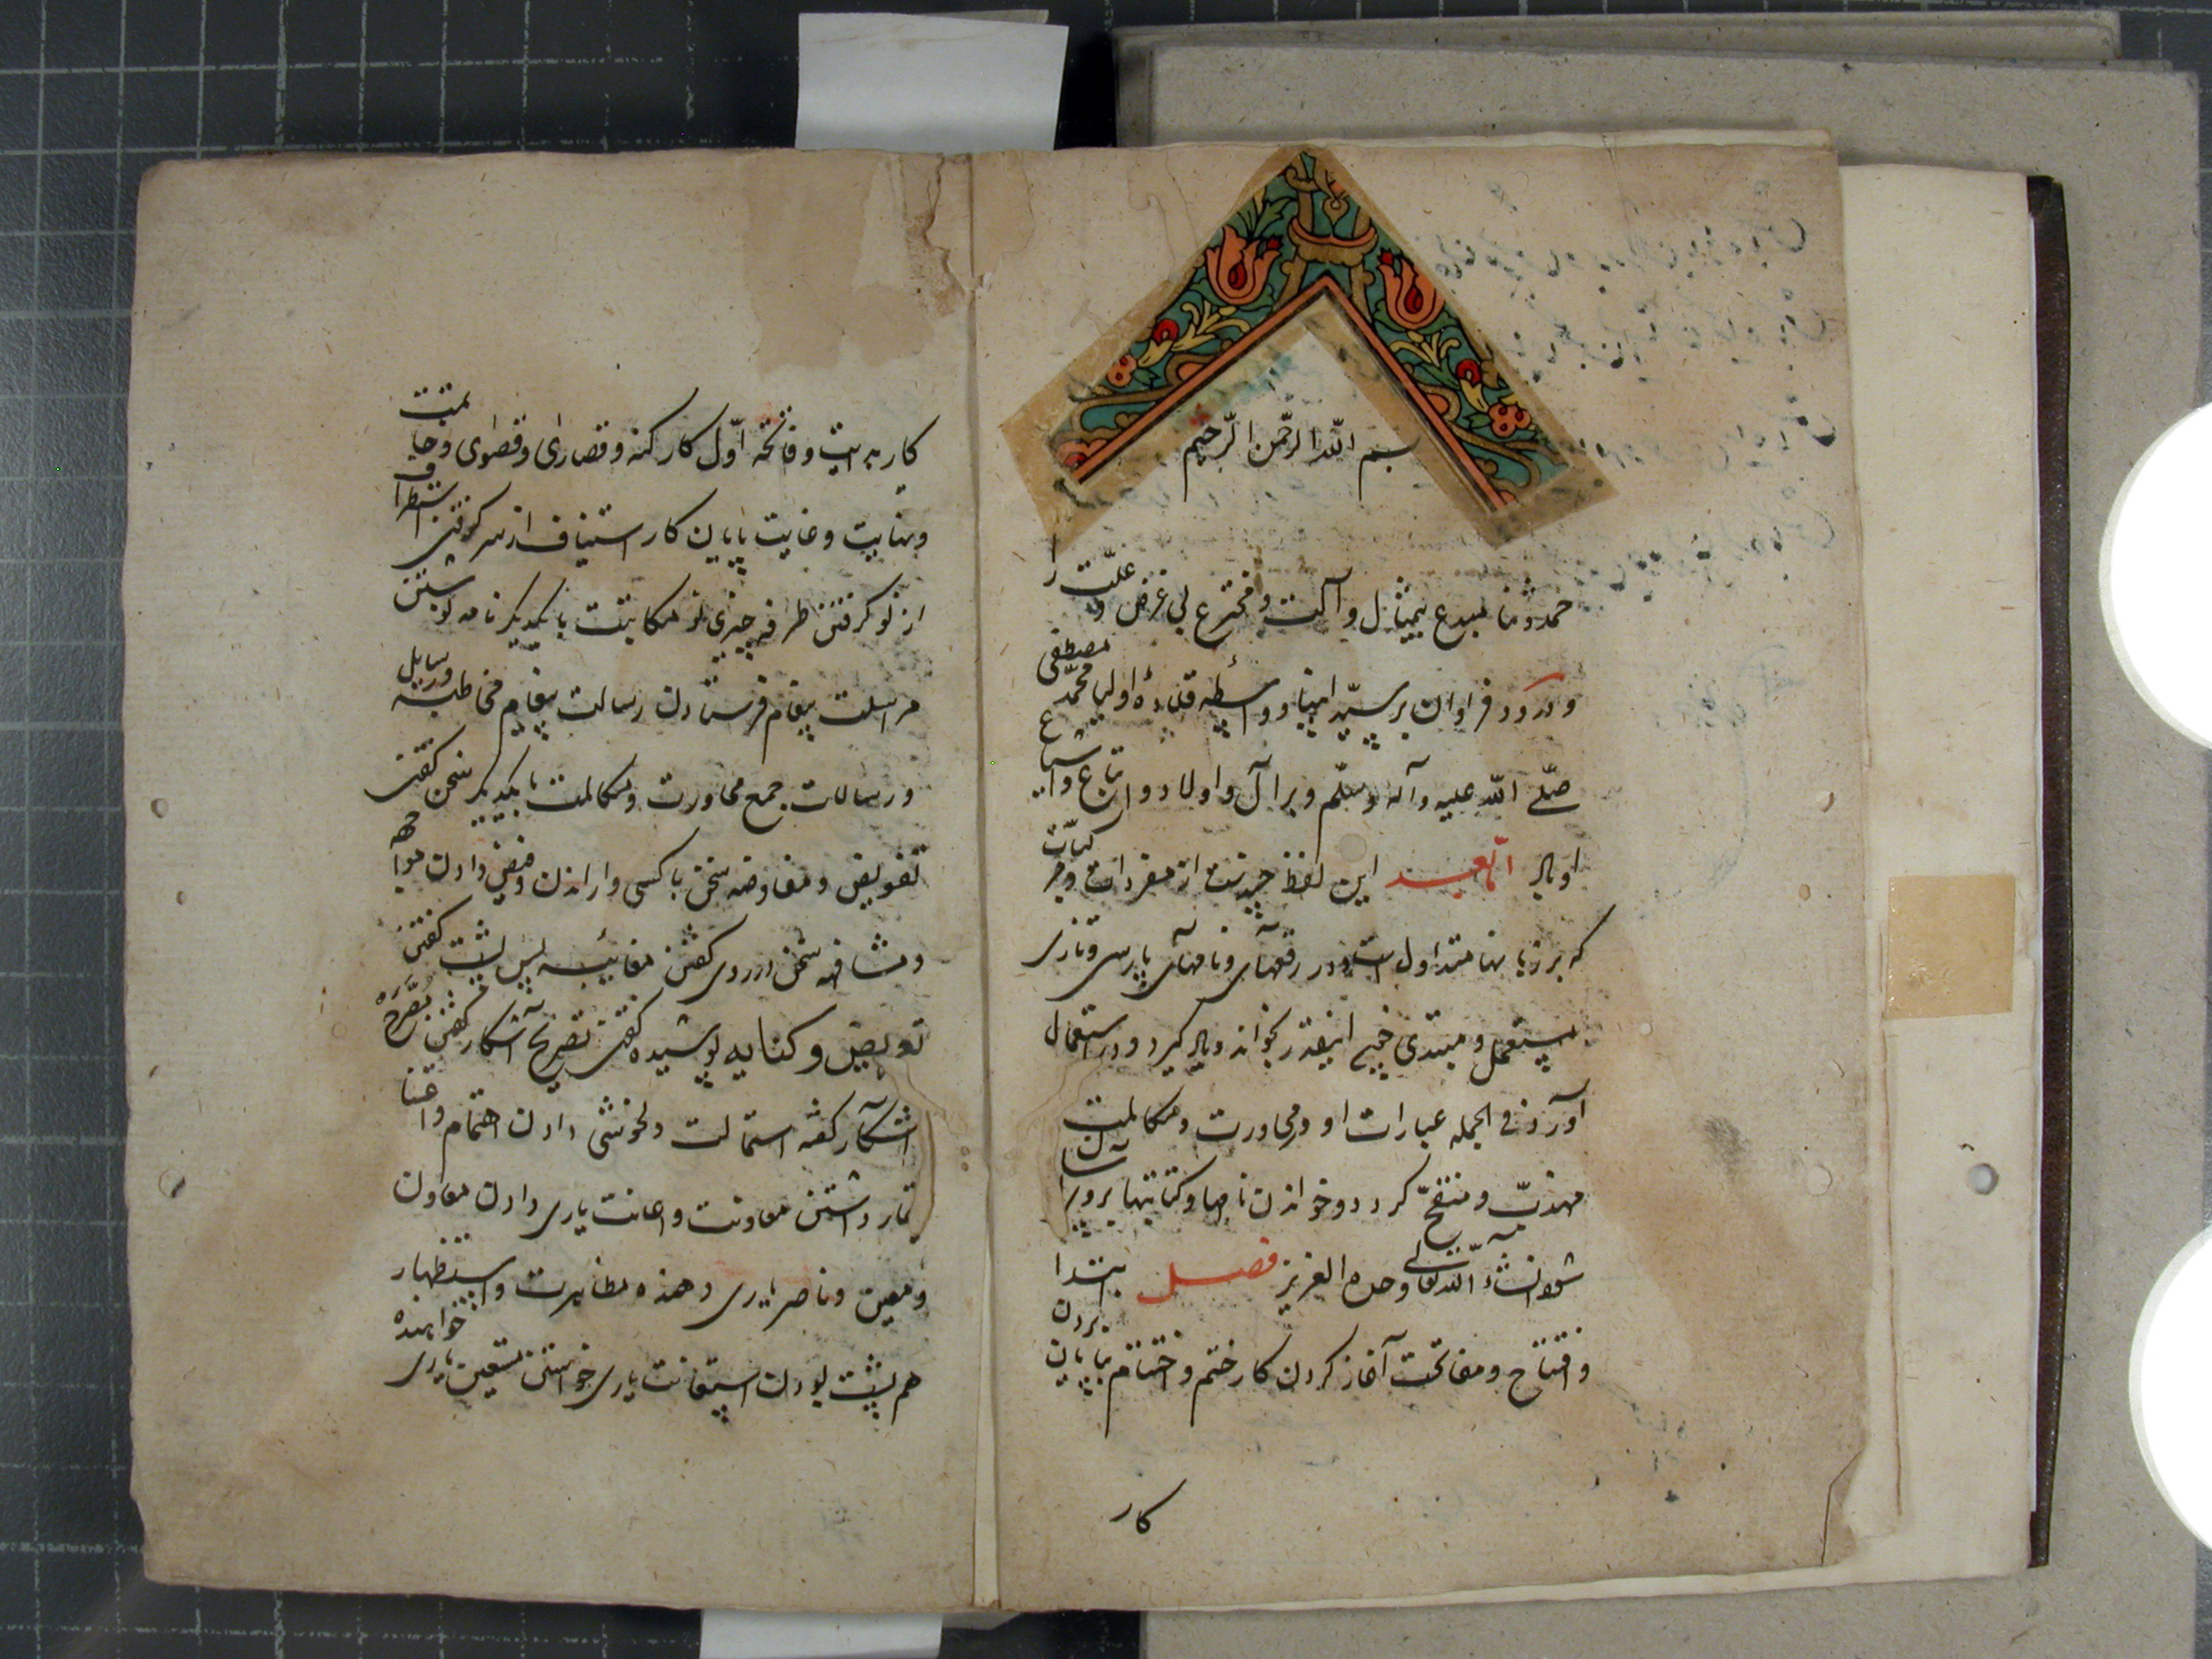 بسم الله الرحمن الرحیم
حمد و ثنا مبدع بیمثل و آلت و مخترع بی غرض و علّت را
و درود فراوان بر سیّد انبیا و واسطه قلادهٔ اولیا محمّد مصطفی
صلّی الله علیه و آله و سلّم و بر آل و اولاد و اتباع و اشیاع
او باد امّا بعد این لفظ چندست از مفردات و مرکبّات
که بر زبانها متداول است و در رقعهای و نامهآی پارسی و تازی
مستعمل و مبتدی خیّج اینقدر بخواند و یاد گیرد و در استعمال
آورد فی الجمله عبارات او در محاورت و مکالمت
مهذبّ و منقّح گردد و خواندن نامها و کتابتها برو آسان
شود انشاء الله تعالی وحده العزیز فصل ابتدا
و افتتاح و مفاتحت آغاز کردن کار ختم و اختتام بپایان بردن
کار
کار بدایت و فاتحه اوّل کار کنه و قصارای و قصوای و خاتمت
و نهایت و غایت پایان کار استیناف از سر گرفتن استطراف
از نو گرفتن طرافه چیزی نو مکاتبت با یکدیگر نامه نوشتن
مراسلت پیغام فرستادن رسالت پیغام مخاطبه و رسایل
و رسالات جمع محاورت و مکالمت با یکدیگر سخن گفتن
تفویض و مفاوضه سخن با کسی وا راندن و فیض دادن مواجهه
و مشافهه سخن در روی گفتن مغایبه پس پشت گفتن
تعریض و کنایه پوشیده گفتن تصریح آشکار گفتن مصرّح
آشکار گفته استمالت دلخوشی دادن اهتمام و اعتنا
تیمار داشتن معاونت و اعانت یاری دادن معاون
و معین و ناصر یاری دهنده مظاهرت و استظهار
هم پشت بودن استعانت یاری خواستن مستعین یاری خواهنده